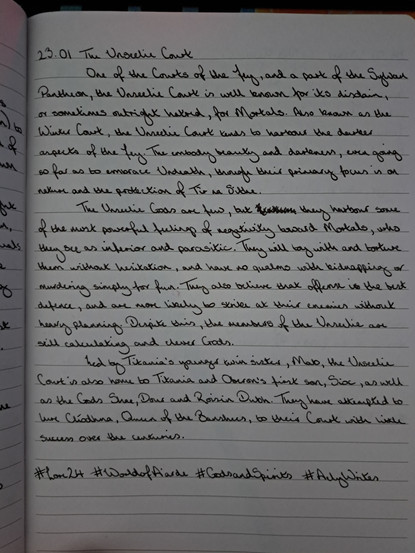 23.01 The Unseelie Court
One of the Courts of the Fey, and a part of the Sylvan
Pantheon, the Unseelie Court is well known for its disdain,
or sometimes outright hatred, for Mortals. Also known as the
Winter Court, the Unseelie Court tends to harbour the darker
aspects of the Fey. The embody beauty and darkness, even going
so far as to embrace Undeath, through their primary focus is on
nature and the protection of Tir na Sithe.
The Unseelie Gods are few, but they harbour some
of the most powerful feelings of negativity toward Mortals, who
they see as inferior and parasitic. They will toy with and torture
them without hesitation, and have no qualms with kidnapping or
murdering simply for fun. They also believe that offense is the best
defence, and are more likely to strike at their enemies without
heavy planning. Despite this, the members of the Unseelie are
still calculating and clever Gods.
Led by Titania's younger twin sister, Mab, the Unseelie
Court is also home to Titania and Oberon's first son, as well
as the Gods and Roisin Dubh. They have attempted to
lure Clíodhna, Queen of the Banshees, to their Court with little
success over the centuries.
#Lore24 #WorldofAiarde #GodsandSpirits #ArlyWrites